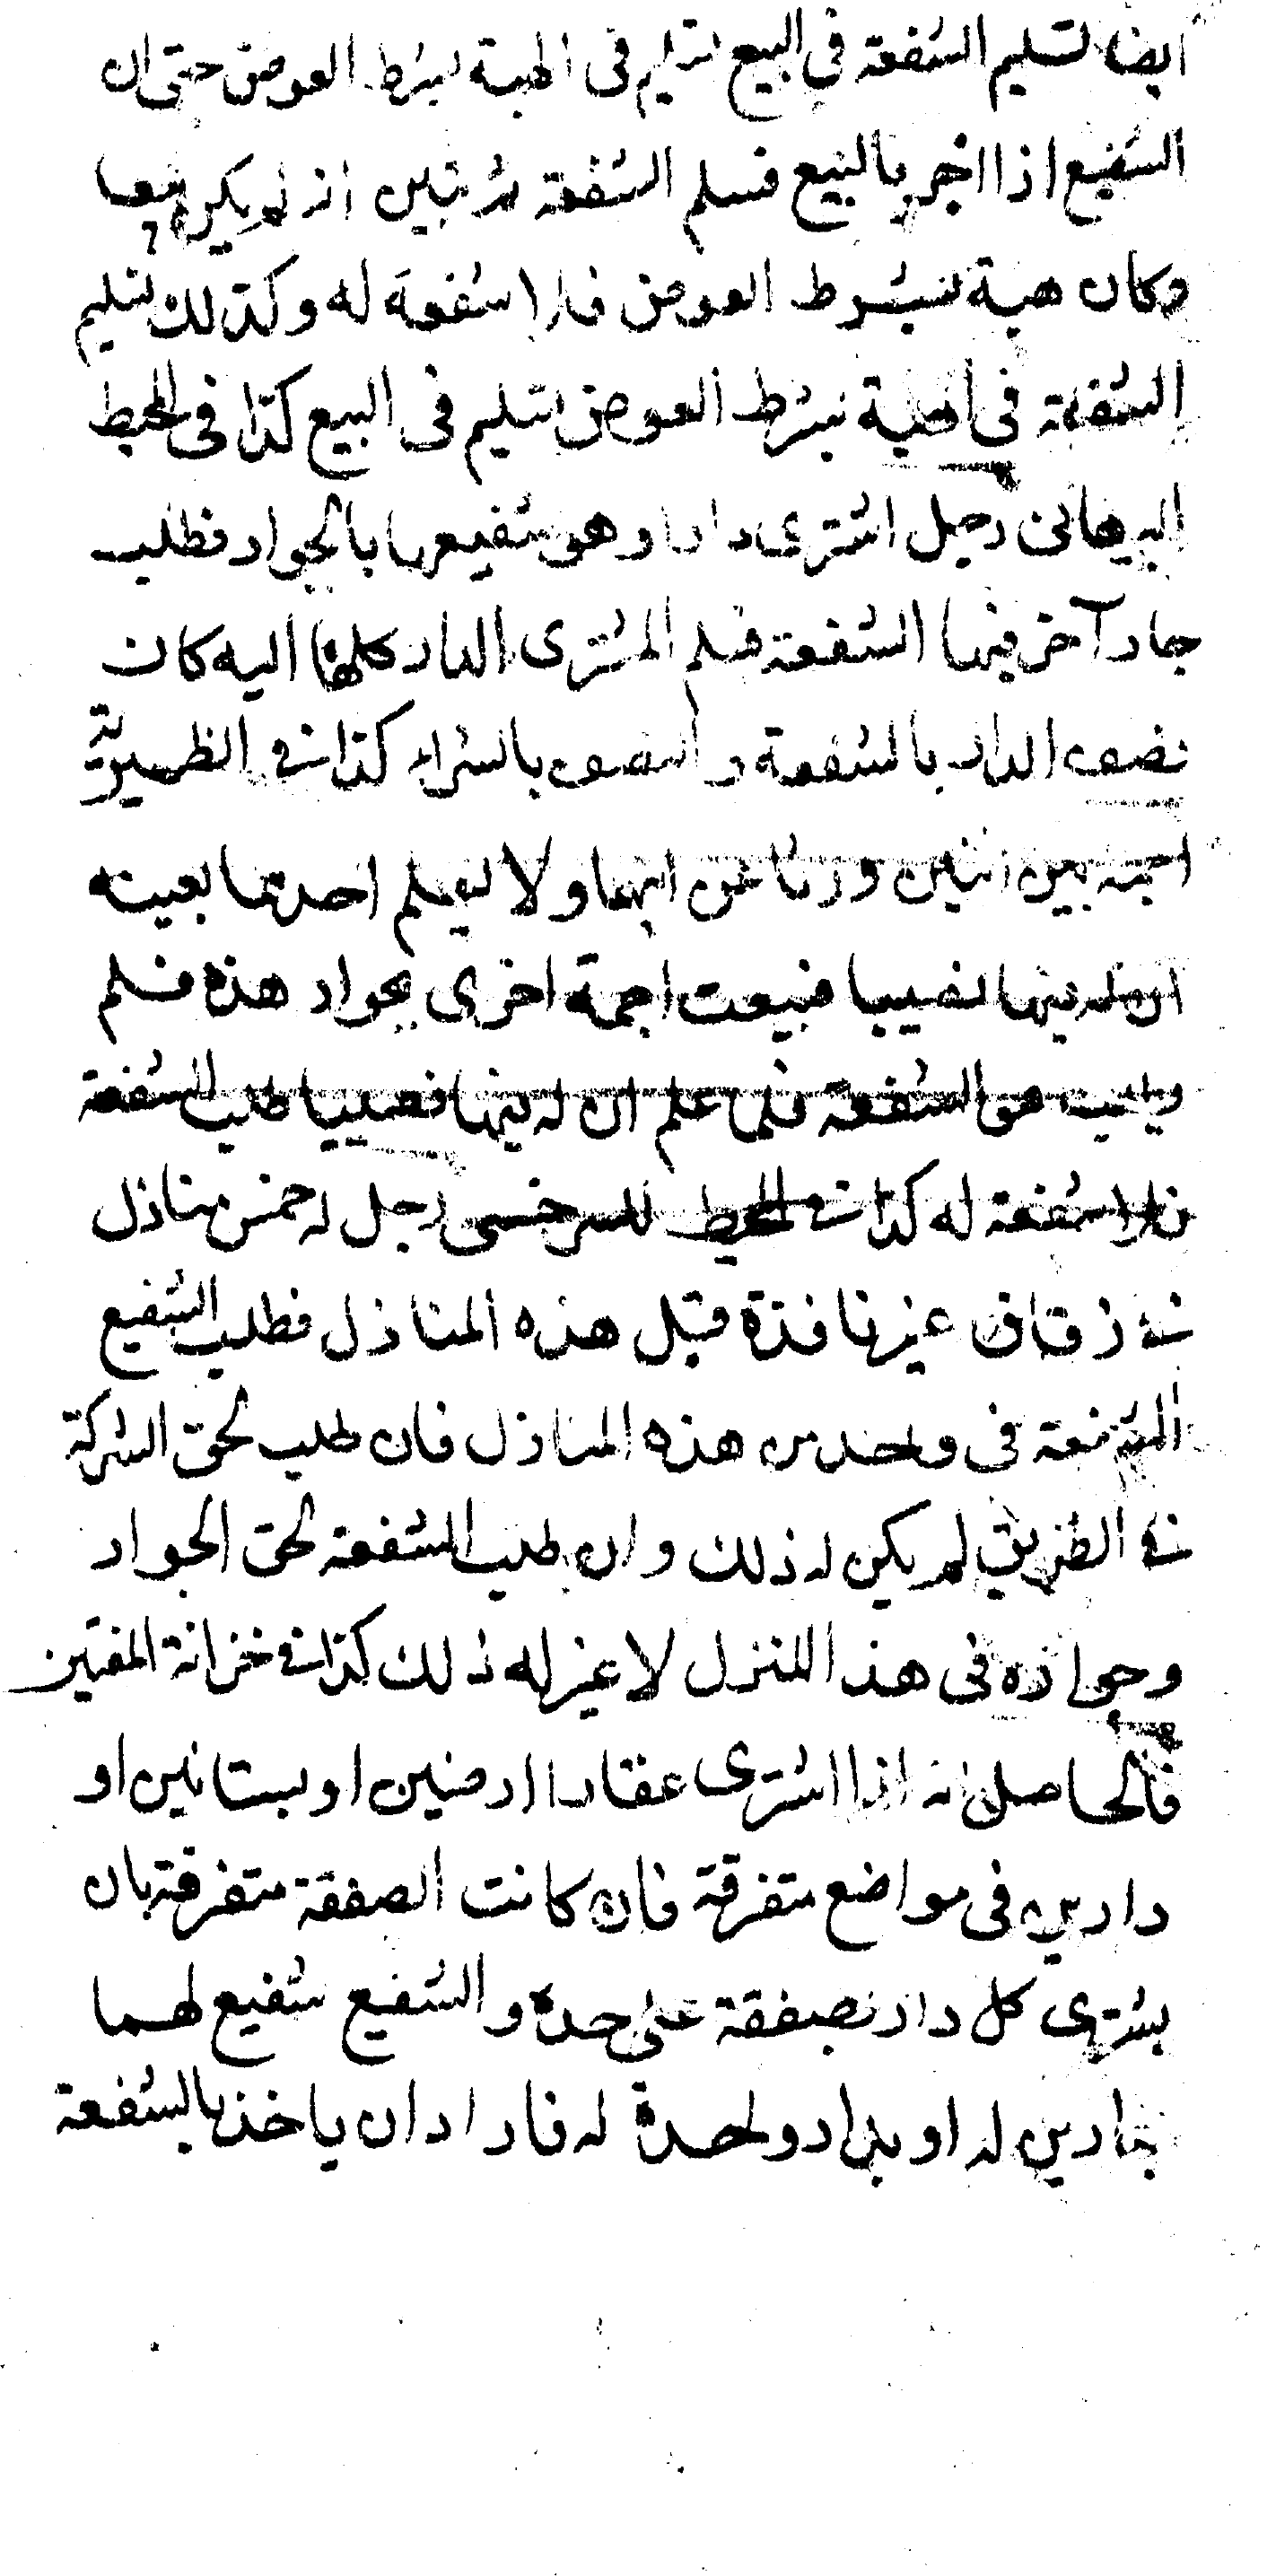 ايضا تسليم الشفعة في البيع تسليم في الهبة بشرط العوض حتى ان
الشفيع اذا اخبر بالبيع فسلم الشفعة ثم تبين انه لم يكن بيعا
وكان هبة بشرط العوض فلا شفعة له وكذلك تسليم
الشفعة في الهبة بشرط العوض تسليم في البيع كذا في المحيط
البرهاني رجل اشترى دارا وهو شفيعها بالجوار فطلب
جار آخر فيها الشفعة فسلم المشترى الدار كلها اليه كان
نصف الدار بالشفعة والنصف بالشراء كذا في الظهيرية
اجمة بين اثنين ورثا عن ابيهما ولا يعلم احدهما بعينه
ان له فيها نصيبا فبيعت اجمة اخرى بجوار هذه فسلم
هو الشفعة فلما علم ان له فيها نصيبا طلب الشفعة
فلا شفعة له كذا في المحيط للسرخسى رجل له خمس منازل
في زقاق غير نافذة فبيل هذه المنازل فطلب الشفيع
الشفعة في واحد من هذه المنازل فان طلب لحق الشركة
في الطريق لم يكن له ذلك وان طلب الشفعة لحق الجوار
وجواره في هذا المنزل لا غير له ذلك كذا في خزانة المفتين
فالحاصل انه اذا اشترى عقارا ارضين او بستانين او
دارين في مواضع متفرقة فان كانت الصفقة متفرقة بان
يشترى كل دار بصفقة على حدة والشفيع شفيع لهما
بدارين له او بدار واحدة له فاراد ان ياخذ بالشفعة